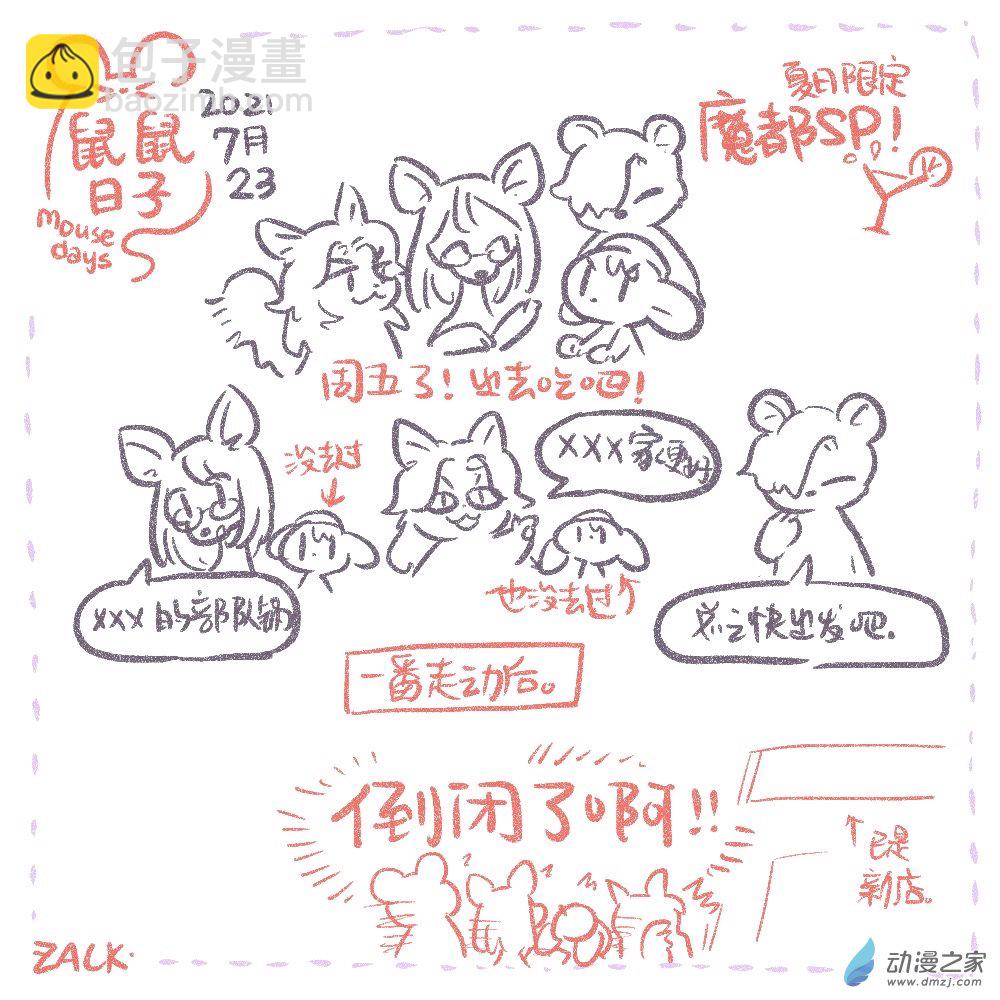 包子漫畫
baozimh.com
鼠鼠
日子
mouse
days
2020
7月
23
夏日限定
魔都SP!
周五了!出去吃吧!
没去过
XXX家更好
XXX的部队锅
也没去过
总之快出发吧.
一番走动后。
倒闭了啊!!
已是
新店。
ZALK.
动漫之家
www.dmzj.com